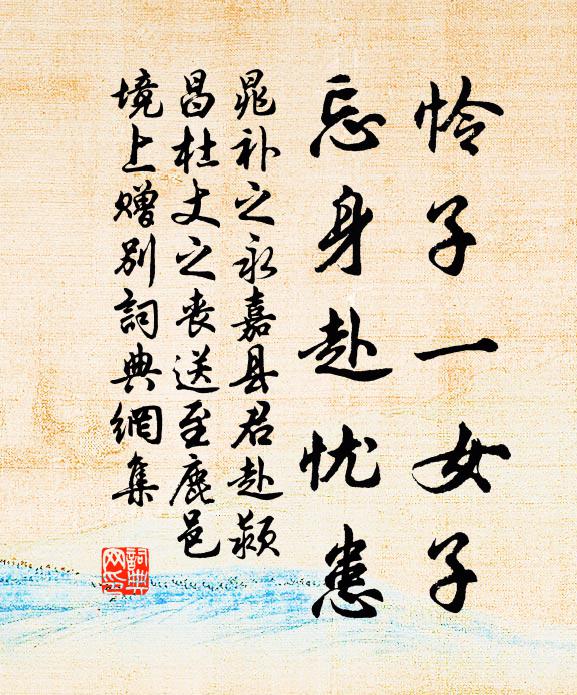 怜子一女子
忘身赴忧患
晁补之永嘉县君赴颍
昌杜丈之丧送至鹿邑
境上赠别詞典網集
詞典网印